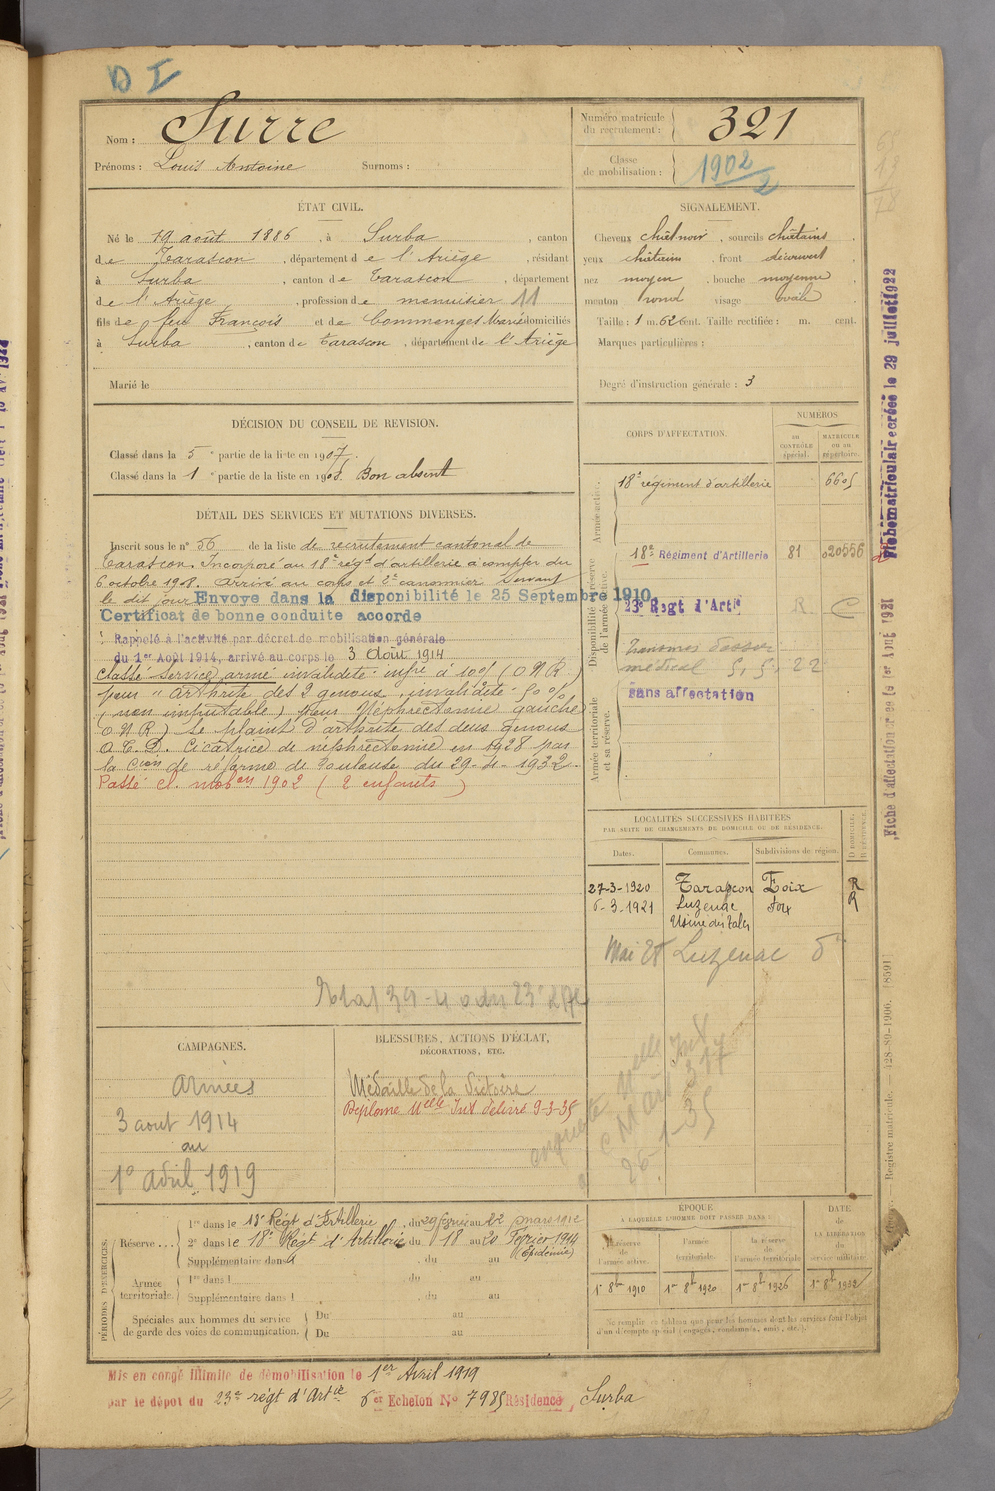 D I
Nom : Surre
Prénoms : Louis Antoine Surnoms :
Numéro matricule du recrutement : 321
Classe de mobilisation : 1902/2
ÉTAT CIVIL.
Né le 19 août 1886, à Surba, canton
de Tarascon, département de l'Ariège, résidant
à Surba, canton de Tarascon, département
de l'Ariège, profession de menuisier 11
fils de feu François et de Commenges Marie domiciliés
à Surba, canton de Tarascon, département de l'Ariège
Marié le
SIGNALEMENT.
Cheveux chât noir, sourcils châtains,
yeux châtains, front découvert,
nez moyen, bouche moyenne,
menton rond visage ovale
Taille : 1 m. 62 cent. Taille rectifiée : m. cent.
Marques particulières :
Degré d'instruction générale : 3
DÉCISION DU CONSEIL DE REVISION.
Classé dans la 5e partie de la liste en 1907.
Classé dans la 1e partie de la liste en 1908. Bon absent
DÉTAIL DES SERVICES ET MUTATIONS DIVERSES.
Inscrit sous le n° 56 de la liste de recrutement cantonal de
Tarascon. Incorporé au 18e régt d'artillerie à compter du
6 octobre 1908. Arrivé au corps et 2e canonnier servant
le dit jour Envoyé dans la disponibilité le 25 Septembre 1910.
Certificat de bonne conduite accordé
Rappelé à l'activité par décret de mobilisation générale
du 1er Août 1914, arrivé au corps le 3 Août 1914
Classé service armé invalidité infre à 10% (O N R)
pour "arthrite des 2 genoux, invalidité 50%
(non imputable) pour Néphrectomie gauche
(O N R) Se plaint d'arthrite des deux genoux
O.E.D. Cicatrice de néphrectomie en 1928 par
la Cion de réforme de Toulouse du 29-4-1932.
Passé cl. mobon 1902 (2 enfants)
CORPS D'AFFECTATION.
NUMÉROS
DU CONTRÔLE spécial.
MATRICULE OU DU répertoire.
Armée active.
18e régiment d'artillerie 6605
Disponibilité et réserve de l'armée active.
18e Régiment d'Artillerie 81 020556
23e Regt d'Artie R C
Transmis dossier
médical
Armée territoriale et sa réserve.
sans affectation
LOCALITÉS SUCCESSIVES HABITÉES
PAR SUITE DE CHANGEMENTS DE DOMICILE OU DE RÉSIDENCE.
Dates. Communes. Subdivisions de région. D DOMICILE. R RÉSIDENCE.
27-3-1920 Tarascon Foix R
6-3-1921 Luzenac Foix R
Usine des Talcs
Mai 28 Luzenac
CAMPAGNES.
Armées
3 août 1914
au
1er avril 1919
BLESSURES, ACTIONS D'ÉCLAT,
DÉCORATIONS, ETC.
Médaille de la Victoire
Diplôme Melle Int délivré 9-3-35
26-1-35
PÉRIODES D'EXERCICES.
Réserve... 1re dans le 18e Régt d'Artillerie, du 29 février au 22 mars 1912
2e dans le 18e Régt d'Artillerie du 18 au 20 Février 1914
Supplémentaire dans l , du au (Épidémie)
Armée territoriale. 1re dans l du au
Supplémentaire dans l , du au
Spéciales aux hommes du service de garde des voies de communication. Du au
Du au
ÉPOQUE
A LAQUELLE L'HOMME DOIT PASSER DANS :
la réserve de l'armée active.
l'armée territoriale.
la réserve de l'armée territoriale.
DATE de LA LIBÉRATION du service militaire.
1er 8b 1910 1er 8b 1920 1er 8b 1926 1er 8b 1932
Ne remplir ce tableau que pour les hommes dont les services font l'objet
d'un décompte spécial (engagés, condamnés, omis, etc.).
Mis en congé illimité de démobilisation le 1er Avril 1919
par le dépôt du 23e régt d'Artie 6e Echelon No 7985 Résidence, Surba
Fiche matriculaire créée le 29 juillet 1922
Registre matricule. — 428-80-1906. [8591]